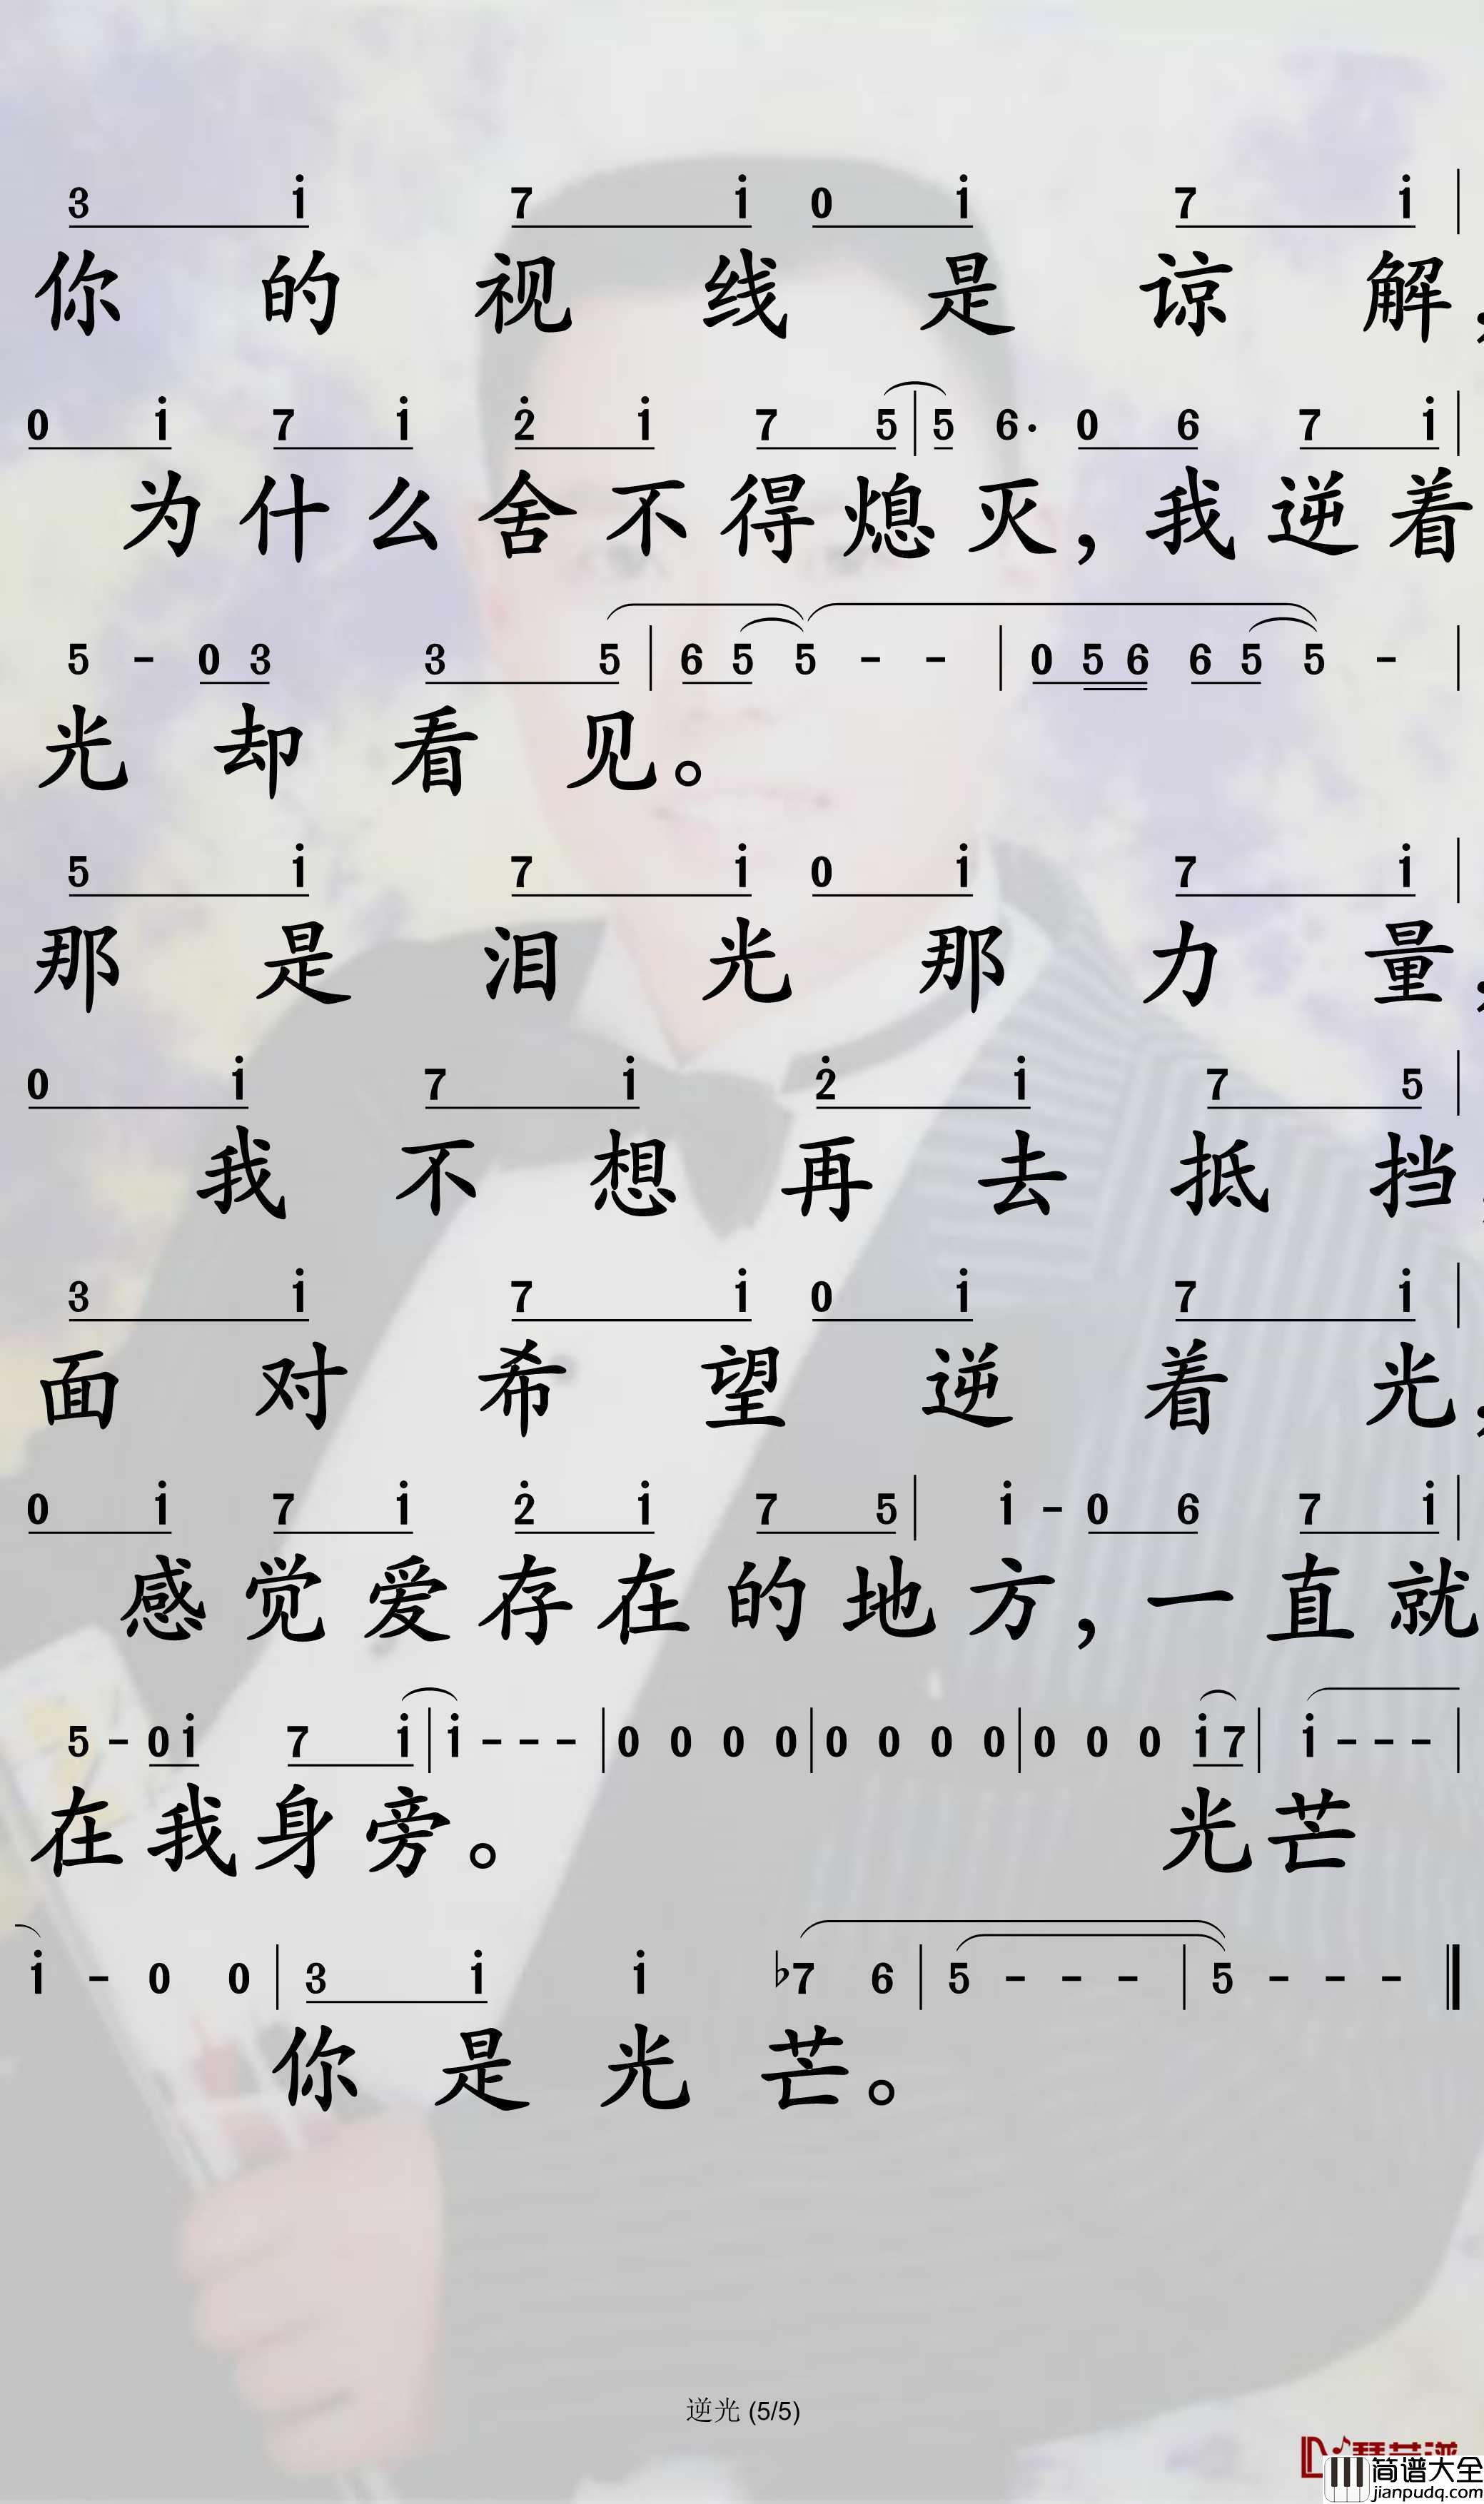 3 i 7 i 0 i 7 i |
你的视线是谅解，
0 i 7 i 2 i 7 5 | 5 6· 0 6 7 i |
为什么舍不得熄灭，我逆着
5 - 0 3 3 5 | 6 5 5 - - | 0 5 6 6 5 5 - |
光却看见。
5 i 7 i 0 i 7 i |
那是泪光那力量，
0 i 7 i 2 i 7 5 |
我不想再去抵挡，
3 i 7 i 0 i 7 i |
面对希望逆着光，
0 i 7 i 2 i 7 5 | i - 0 6 7 i |
感觉爱存在的地方，一直就
5 - 0 i 7 i | i - - - | 0 0 0 0 | 0 0 0 0 | 0 0 0 i 7 | i - - - |
在我身旁。 光芒
i - 0 0 | 3 i i ♭7 6 | 5 - - - | 5 - - - ‖
你是光芒。
逆光 (5/5)
简谱大全
jianpudq.com